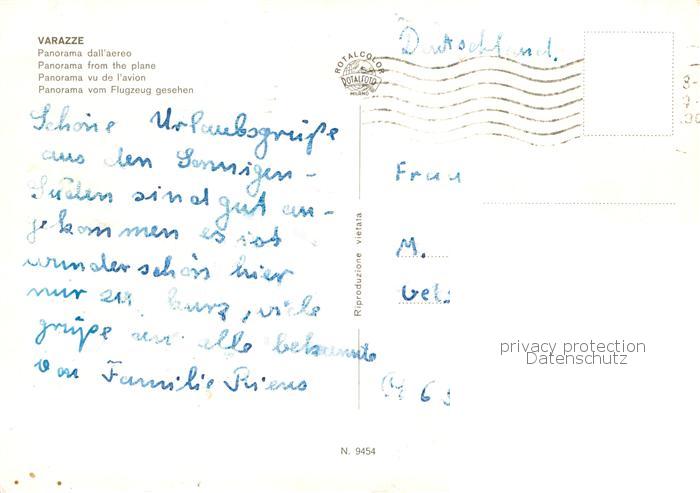 VARAZZE
Panorama dall'aereo
Panorama from the plane
Panorama vu de l'avion
Panorama vom Flugzeug gesehen
ROTALCOLOR
ROTALFOTO
MILANO
Deutschland.
Schöne Urlaubsgrüße
aus den Sonnigen-
Süden sind gut an-
gekommen es ist
wunderschön hier
nur zu kurz, viele
grüße an alle bekannte
von Familie
Frau
M.
Riproduzione vietata
privacy protection
Datenschutz
N. 9454